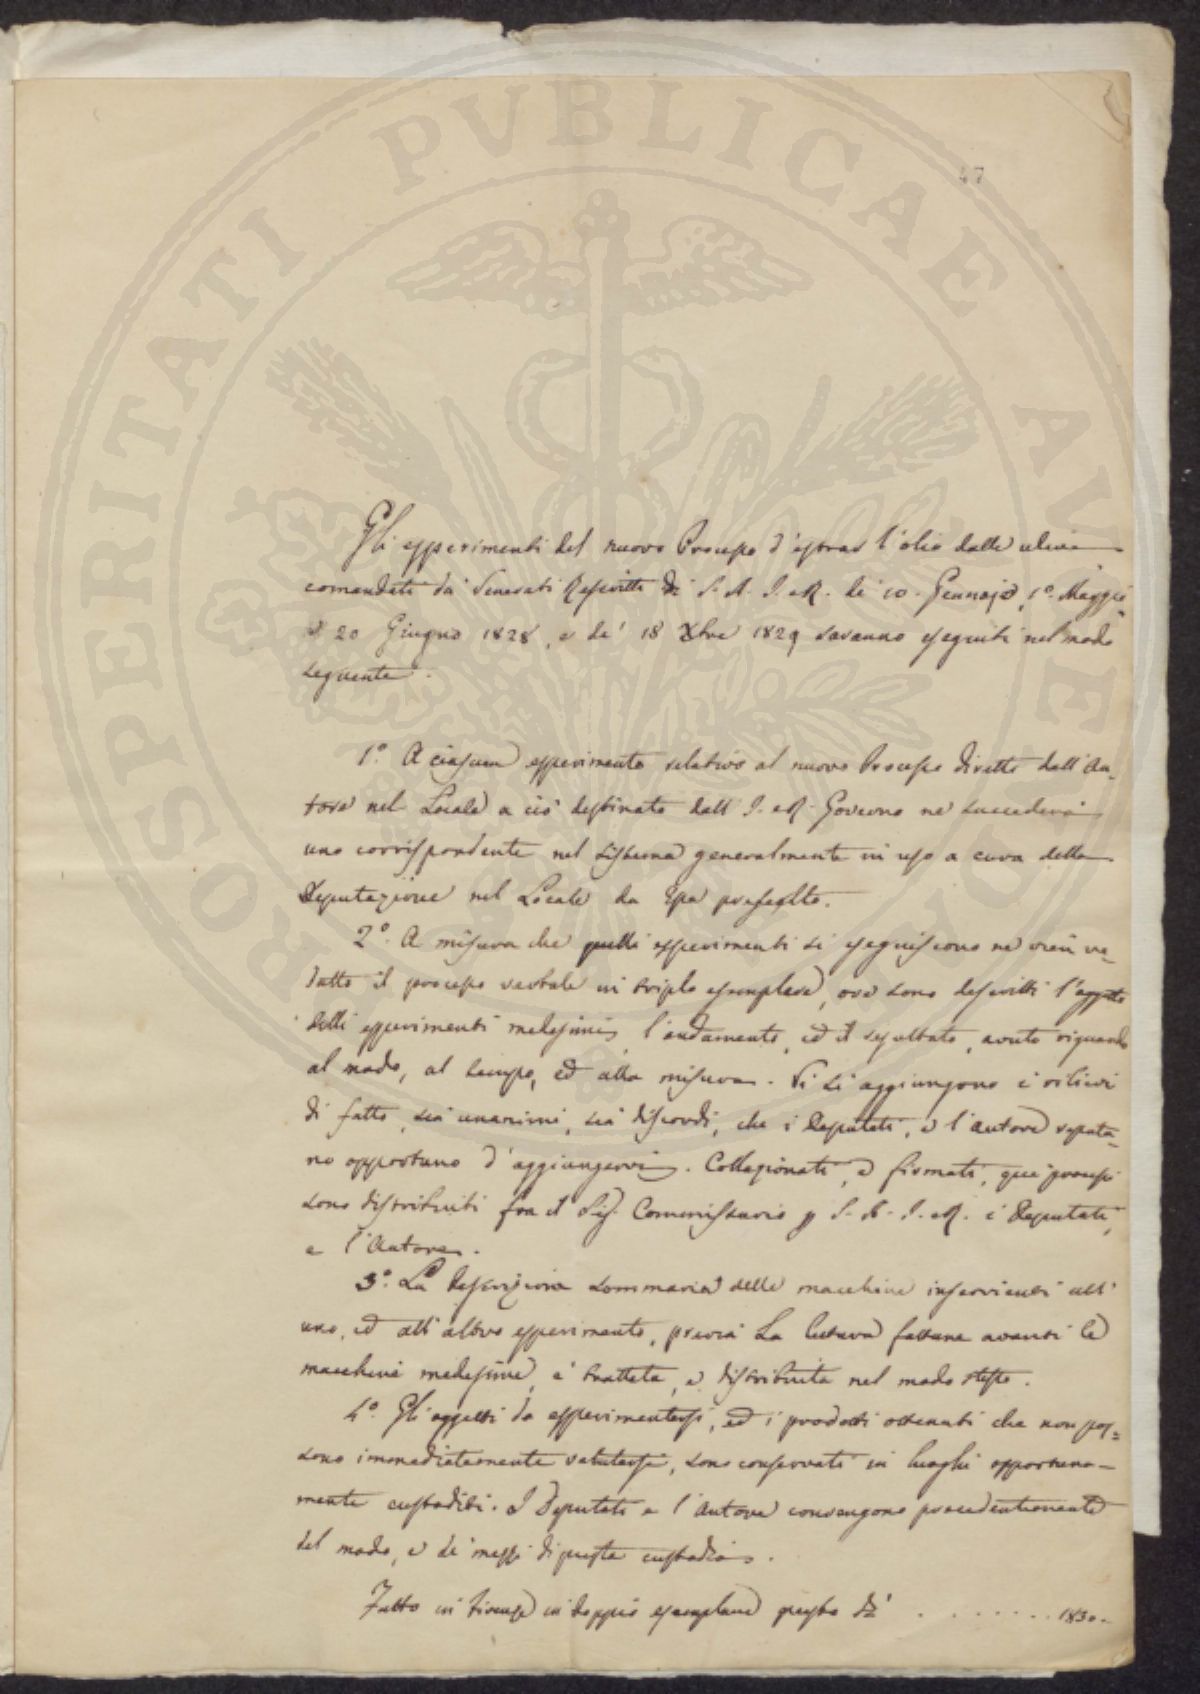 PROSPERITATI PVBLICAE AVGENDAE
47
Gli esperimenti del nuovo Processo d'estrar l'olio dalle ulive
comandati da' Venerati Rescritti di S. A. I. e R. de' 10. Gennajo, 1º. Maggio
e 20 Giugno 1828, e de' 18 Xbre 1829 saranno eseguiti nel modo
seguente.
1º. A ciascun esperimento relativo al nuovo Processo diretto dall'Au-
tore nel Locale a ciò destinato dall'I. e R. Governo ne succederà
uno corrispondente nel sistema generalmente in uso a cura della
Deputazione nel Locale da Essa prescelto.
2º. A misura che quelli esperimenti si eseguiscono ne vien re-
datto il processo verbale in triplo esemplare, ove sono descritti l'oggetto
delli esperimenti medesimi, l'andamento, ed il resultato, avuto riguardo
al modo, al tempo, ed alla misura. Vi si aggiungono i rilievi
di fatto, sia unanimi, sia discordi, che i Deputati, e l'autore reputa-
no opportuno d'aggiungervi. Collazionati, e firmati, quei processi
sono distribuiti fra il Sig. Commissario p S. A. I. e R. i Deputati,
e l'Autore.
3º. La descrizione sommaria delle macchine inservienti all'
uno, ed all'altro esperimento, previa la lettura fattane avanti le
macchine medesime, è trattata, e distribuita nel modo stesso.
4º. Gli oggetti da esperimentarsi, ed i prodotti ottenuti che non pos=
sono immediatamente valutarsi, sono conservati in luoghi opportuna-
mente custoditi. I Deputati e l'autore convengono precedentemente
del modo, e de' mezzi di questa custodia.
Fatto in Firenze in doppio esemplare questo dì . . . . . . . . 1830.